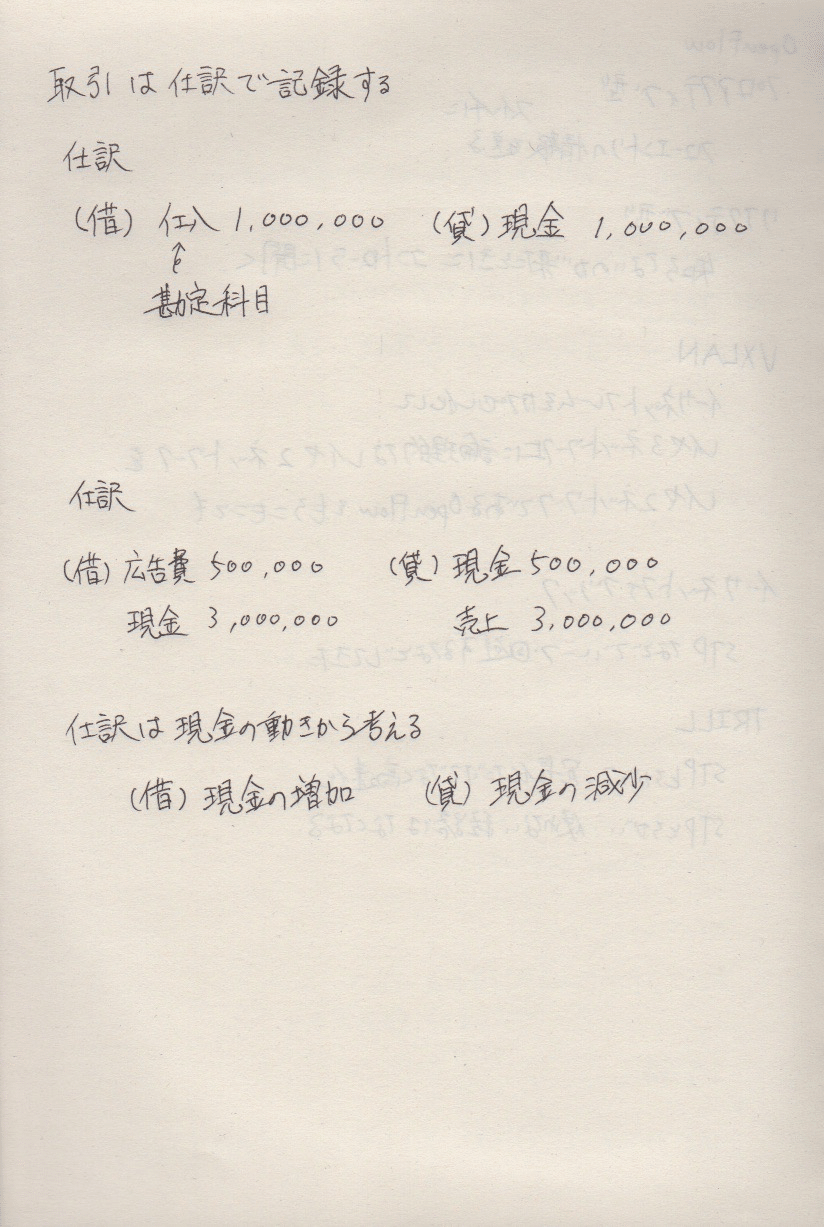 取引は仕訳で記録する
仕訳
(借) 仕入 1,000,000 (貸) 現金 1,000,000
↑
勘定科目
仕訳
(借) 広告費 500,000 (貸) 現金 500,000
現金 3,000,000 売上 3,000,000
仕訳は現金の動きから考える
(借) 現金の増加 (貸) 現金の減少